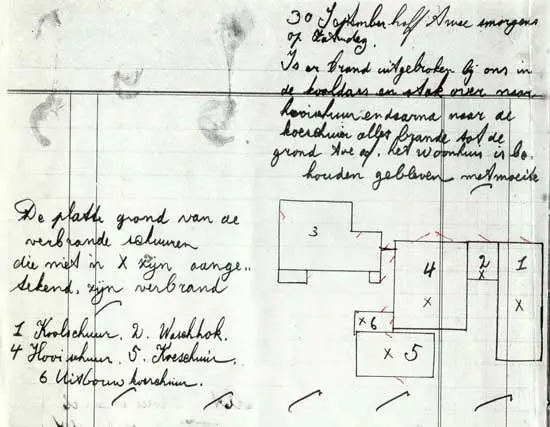 30 September half twee smorgens
op Zaterdag.
Is er brand uitgebroken bij ons in
de en stak over naar
hooischuur en daarna naar de
koeschuur alles brande tot de
grond toe af. het woonhuis is be
houden gebleven met moeite
De platte grond van de
verbrande schuuren
die met in X zijn aange..
tekend, zijn verbrand
1 Koolschuur. 2. Waschhok.
4 Hooischuur. 5. Koeschuur.
6 Uitbouw koeschuur.
3
4
X
2
X
1
X
X 6
X 5